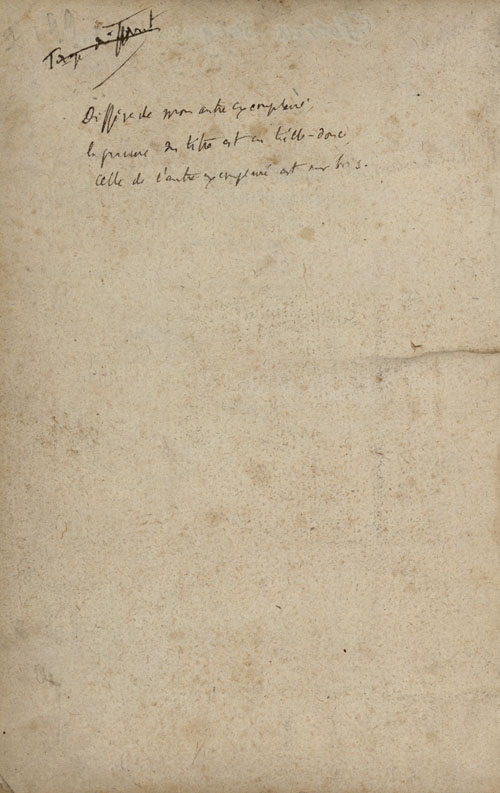 Tirage différent
Diffère de mon autre exemplaire.
la gravure du titre est en taille-douce
celle de l'autre exemplaire est sur bois.